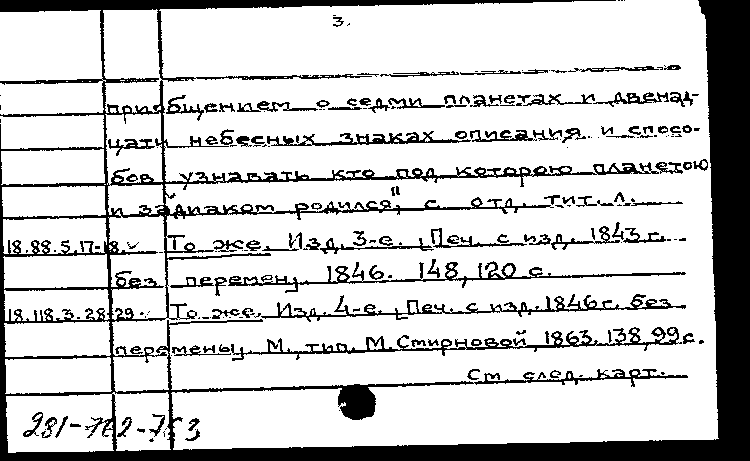 3.
приобщением о седми планетах и двенад-
цати небесных знаках описания и спосо-
бов узнавать кто под которою планетою
и задиаком родился", с отд. тит. л.
18.88.5.17-18. То же. Изд. 3-е. [Печ. с изд. 1843 г.
без перемен]. 1846. 148, 120 с.
18.118.3.28-29. То же. Изд. 4-е. [Печ. с изд. 1846 г. без
перемены]. М., тип. М. Смирновой, 1863. 138, 99 с.
См. след. карт.
281-762-753